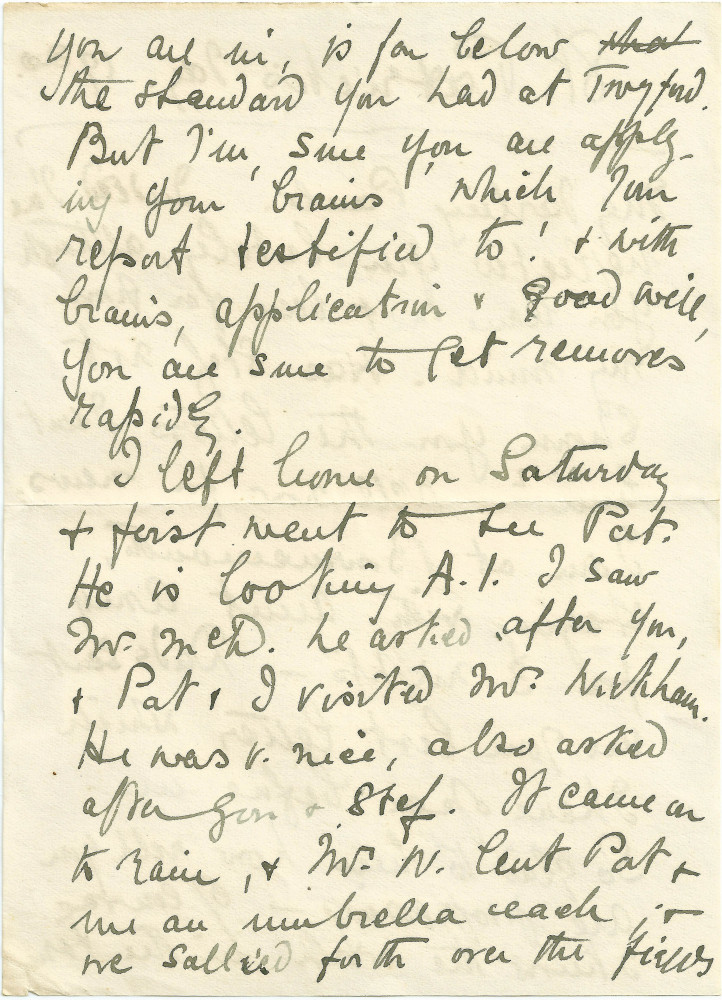 you are in, is far below that
the standard you had at Twyford.
But I'm sure you are apply-
ing your brains which your
report testified to! & with
brains, application & good will,
you are sure to get removes
rapidly.
I left home on Saturday
& first went to see Pat.
He is looking A.1. I saw
Mr. McD. he asked after you,
& Pat & I visited Mr. Wickham.
He was v. nice, also asked
after you & Stef. It came on
to rain, & Mr. W. lent Pat &
me an umbrella each; &
we sallied forth over the fields